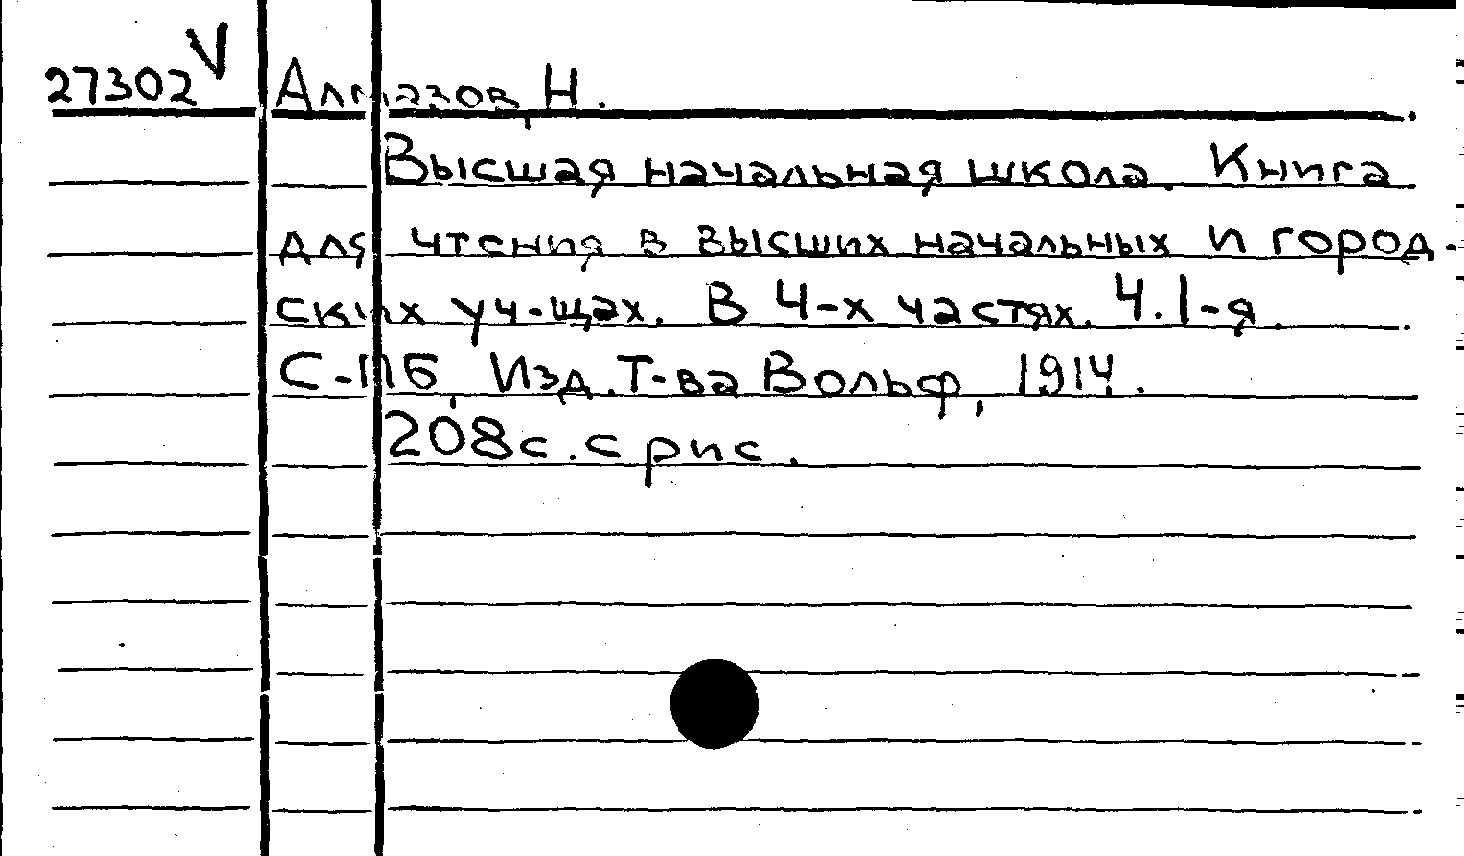 27302 V Алмазов, Н.
Высшая начальная школа. Книга
для чтения в высших начальных и город-
ских уч-щах. В 4-х частях. Ч. I-я.
С-ПБ, Изд. Т-ва Вольф, 1914.
208 с. с рис.